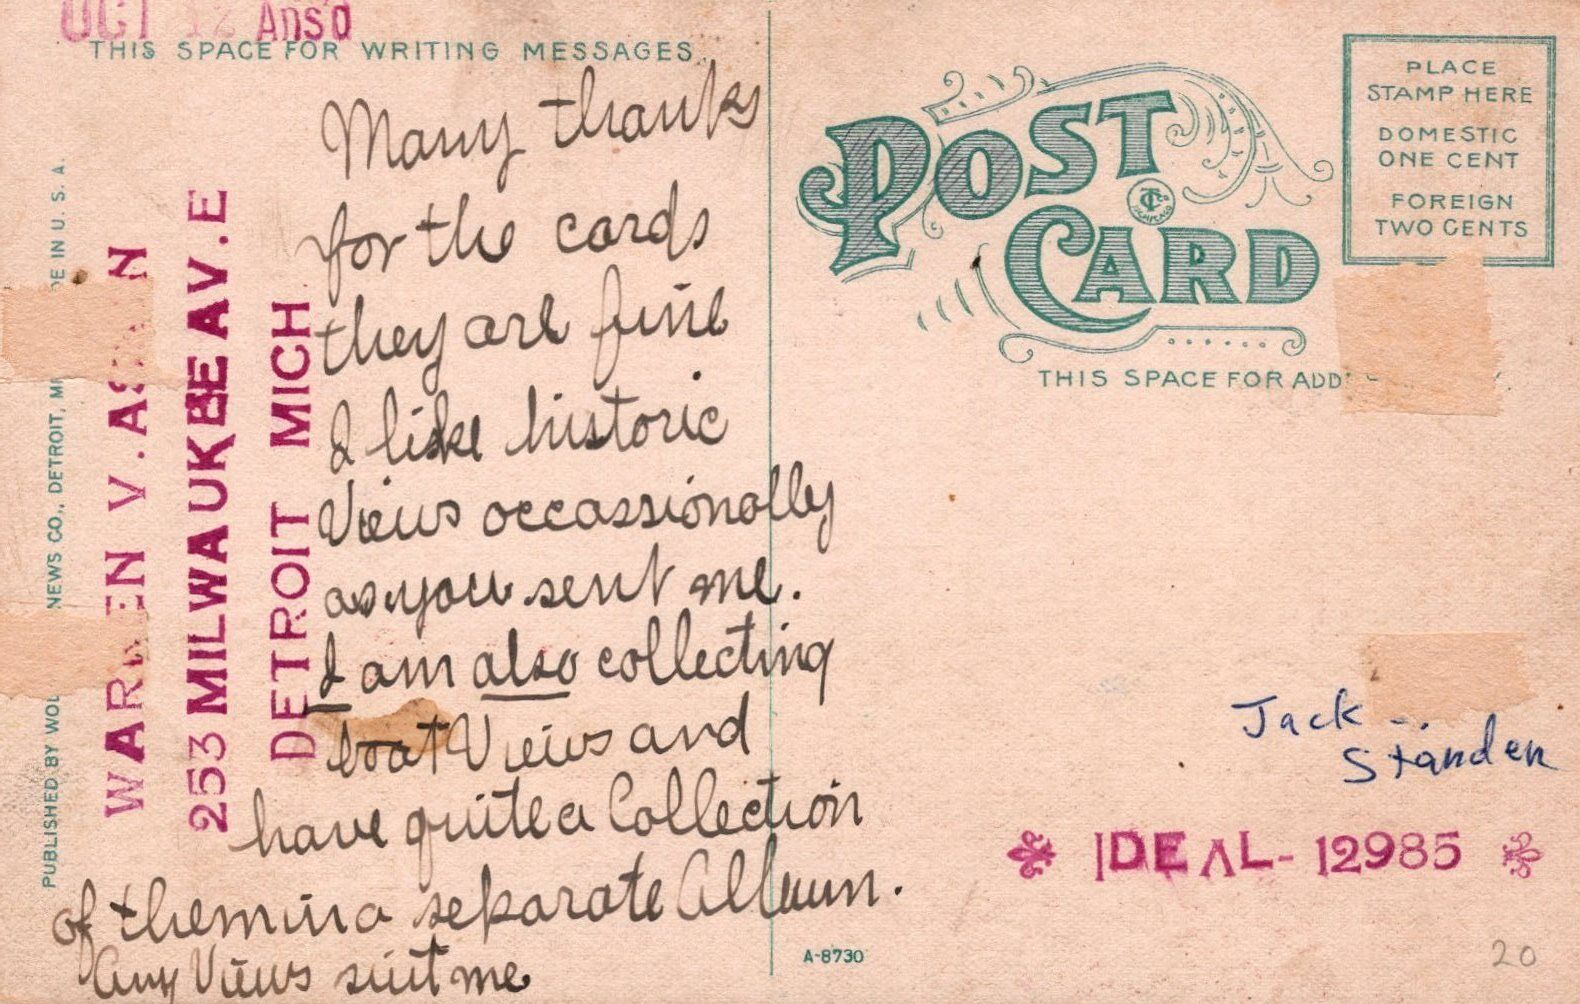 OCT 12 Ansd
THIS SPACE FOR WRITING MESSAGES.
Many thanks
for the cards
they are fine
I like historic
Views occassionally
as you sent me.
I am also collecting
boat Views and
have quite a Collection
of them in a separate Album.
Any Views suit me
WARREN V. AS N
253 MILWAUKEE AV. E
DETROIT MICH
PUBLISHED BY WOL NEWS CO., DETROIT, MI DE IN U. S. A.
POST
CARD
THIS SPACE FOR ADD
PLACE
STAMP HERE
DOMESTIC
ONE CENT
FOREIGN
TWO CENTS
Jack
Standen
IDEAL-12985
A-8730
20